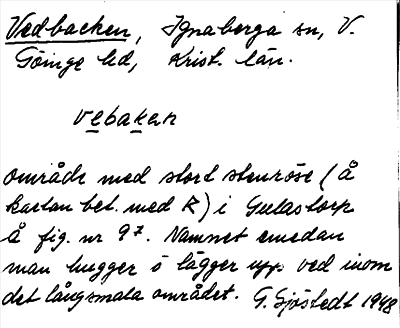 Vedbacken, Ignaberga sn, V.
Göinge hd, Krist. län.
vebaken
område med stort stenröse (å
kartan bet. med R) i Gulastorp
å fig. nr 97. Namnet emedan
man hugger o lägger upp ved inom
det långsmala området. G. Sjöstedt 1948